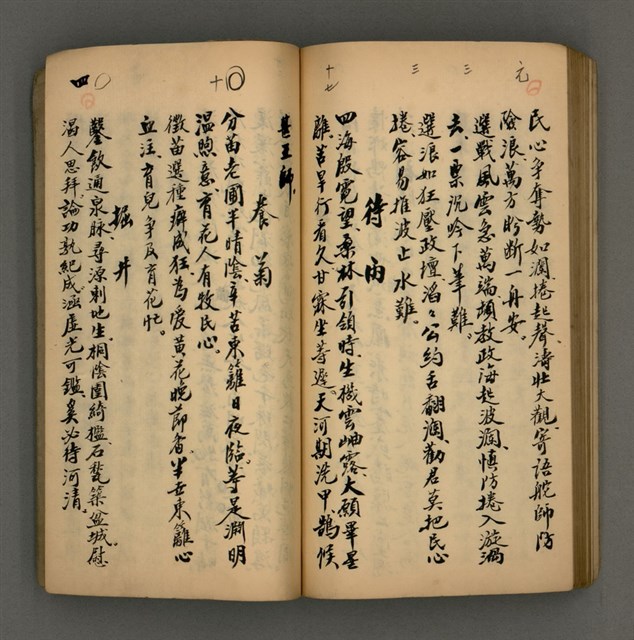 元 三 三 十七
民心爭奪勢如瀾、捲起聲濤壯大觀、寄語舵師防
險浪、萬方盼斷一舟安。
選戰風雲急萬端、頻教政海起波瀾、慎防捲入漩渦
去、一票沉吟下筆難。
選浪如狂壓政壇、滔々公約舌翻瀾、勸君莫把民心
捲、容易推波止水難。
待雨
四海殷霓望、桑林引領時、生機雲岫露、大願畢星
離、苦旱行有久、甘霖坐等遲、天河期洗甲、鵠候
甚王師。
十〇
養菊
分苗老圃半晴陰、辛苦東籬日夜臨、等是淵明
温煦意、育花人有牧民心。
徵苗選種癖成狂、為愛黃花晚節香、半世東籬心
血注、育兒爭及育花忙。
四〇
掘井
鑿飲通泉脉、尋源剝地生、桐陰圍綺檻、石甃築盆城、慰
渴人思拜、論功孰紀成、涵虛光可鑑、奚必待河清。